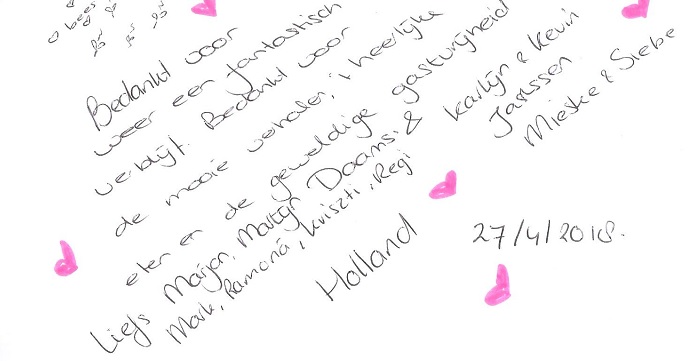 Bedankt voor
weer een fantastisch
verblijf. Bedankt voor
de mooie verhalen, 't heerlijke
eten en de geweldige gastvrijheid
Liefs Marjan, Martijn Daams, & Karlijn & Kevin
Janssen
Mark, Ramona, Kriszti, Regi
Mieske & Siebe
Holland
27/4/2018.